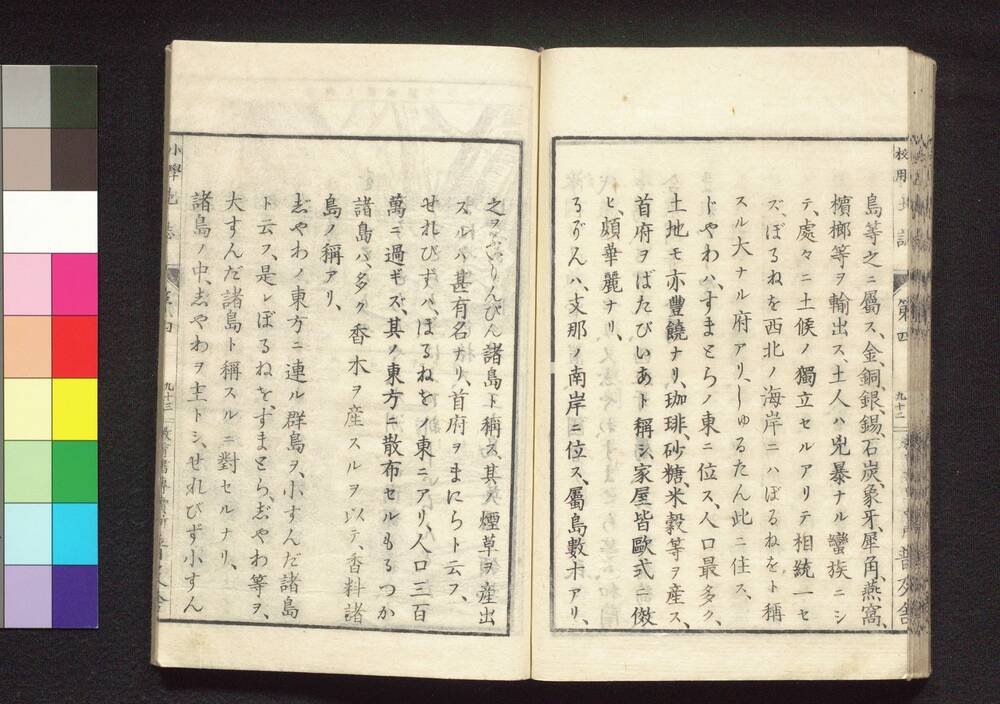 校用地誌
第四
九十二
普及舎
島等之ニ屬ス、金、銅、銀、錫、石炭、象牙、犀角、燕窩、
檳榔等ヲ輸出ス、土人ハ兇暴ナル蠻族ニシ
テ、處々ニ土候ノ獨立セルアリテ相統一セ
ズ、ぼるねを西北ノ海岸ニハぼるねをト稱
スル大ナル府アリ、しゆるたん此ニ住ス、
じやわハ、すまとらノ東ニ位ス、人口最多ク、
土地モ亦豐饒ナリ、珈琲、砂糖、米穀等ヲ産ス、
首府ヲばたびいあト稱シ、家屋皆歐式ニ傚
ヒ、頗華麗ナリ、
ハ、支那ノ南岸ニ位ス、屬島數ホアリ、
之ヲ ひりんぴん諸島ト稱ス、其ノ煙草ヲ産出
スルハ甚有名ナリ、首府ヲまにらト云フ、
せれびずハ、ぼるねをノ東ニアリ、人口三百
萬ニ過ギズ、其ノ東方ニ散布セルもるつか
諸島ハ、多ク香木ヲ産スルヲ以テ、香料諸
島ノ稱アリ、
志゙やわノ東方ニ連ル群島ヲ、小すんだ諸島
ト云フ、是レぼるねを、すまとら、志゙やわ等ヲ、
大すんだ諸島ト稱スルニ對セルナリ、
諸島ノ中、志゙やわヲ主トシ、せれびず小すん
小學地誌
九十三